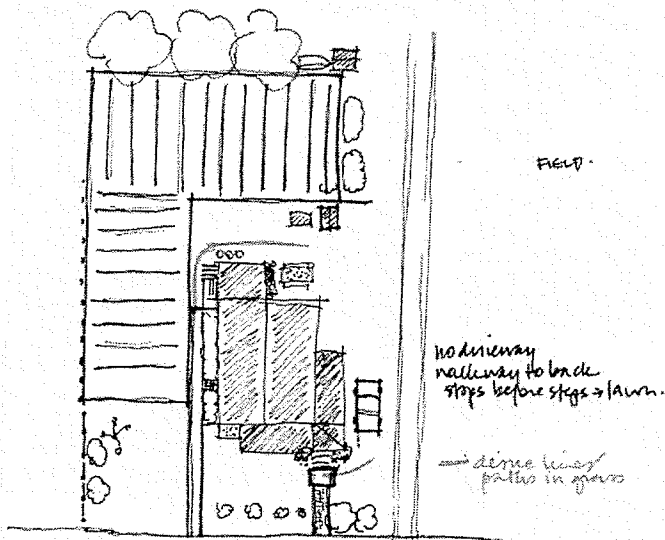 FIELD.
no driveway
walkway to back
stops before steps → lawn.
— desire lines
paths in grass